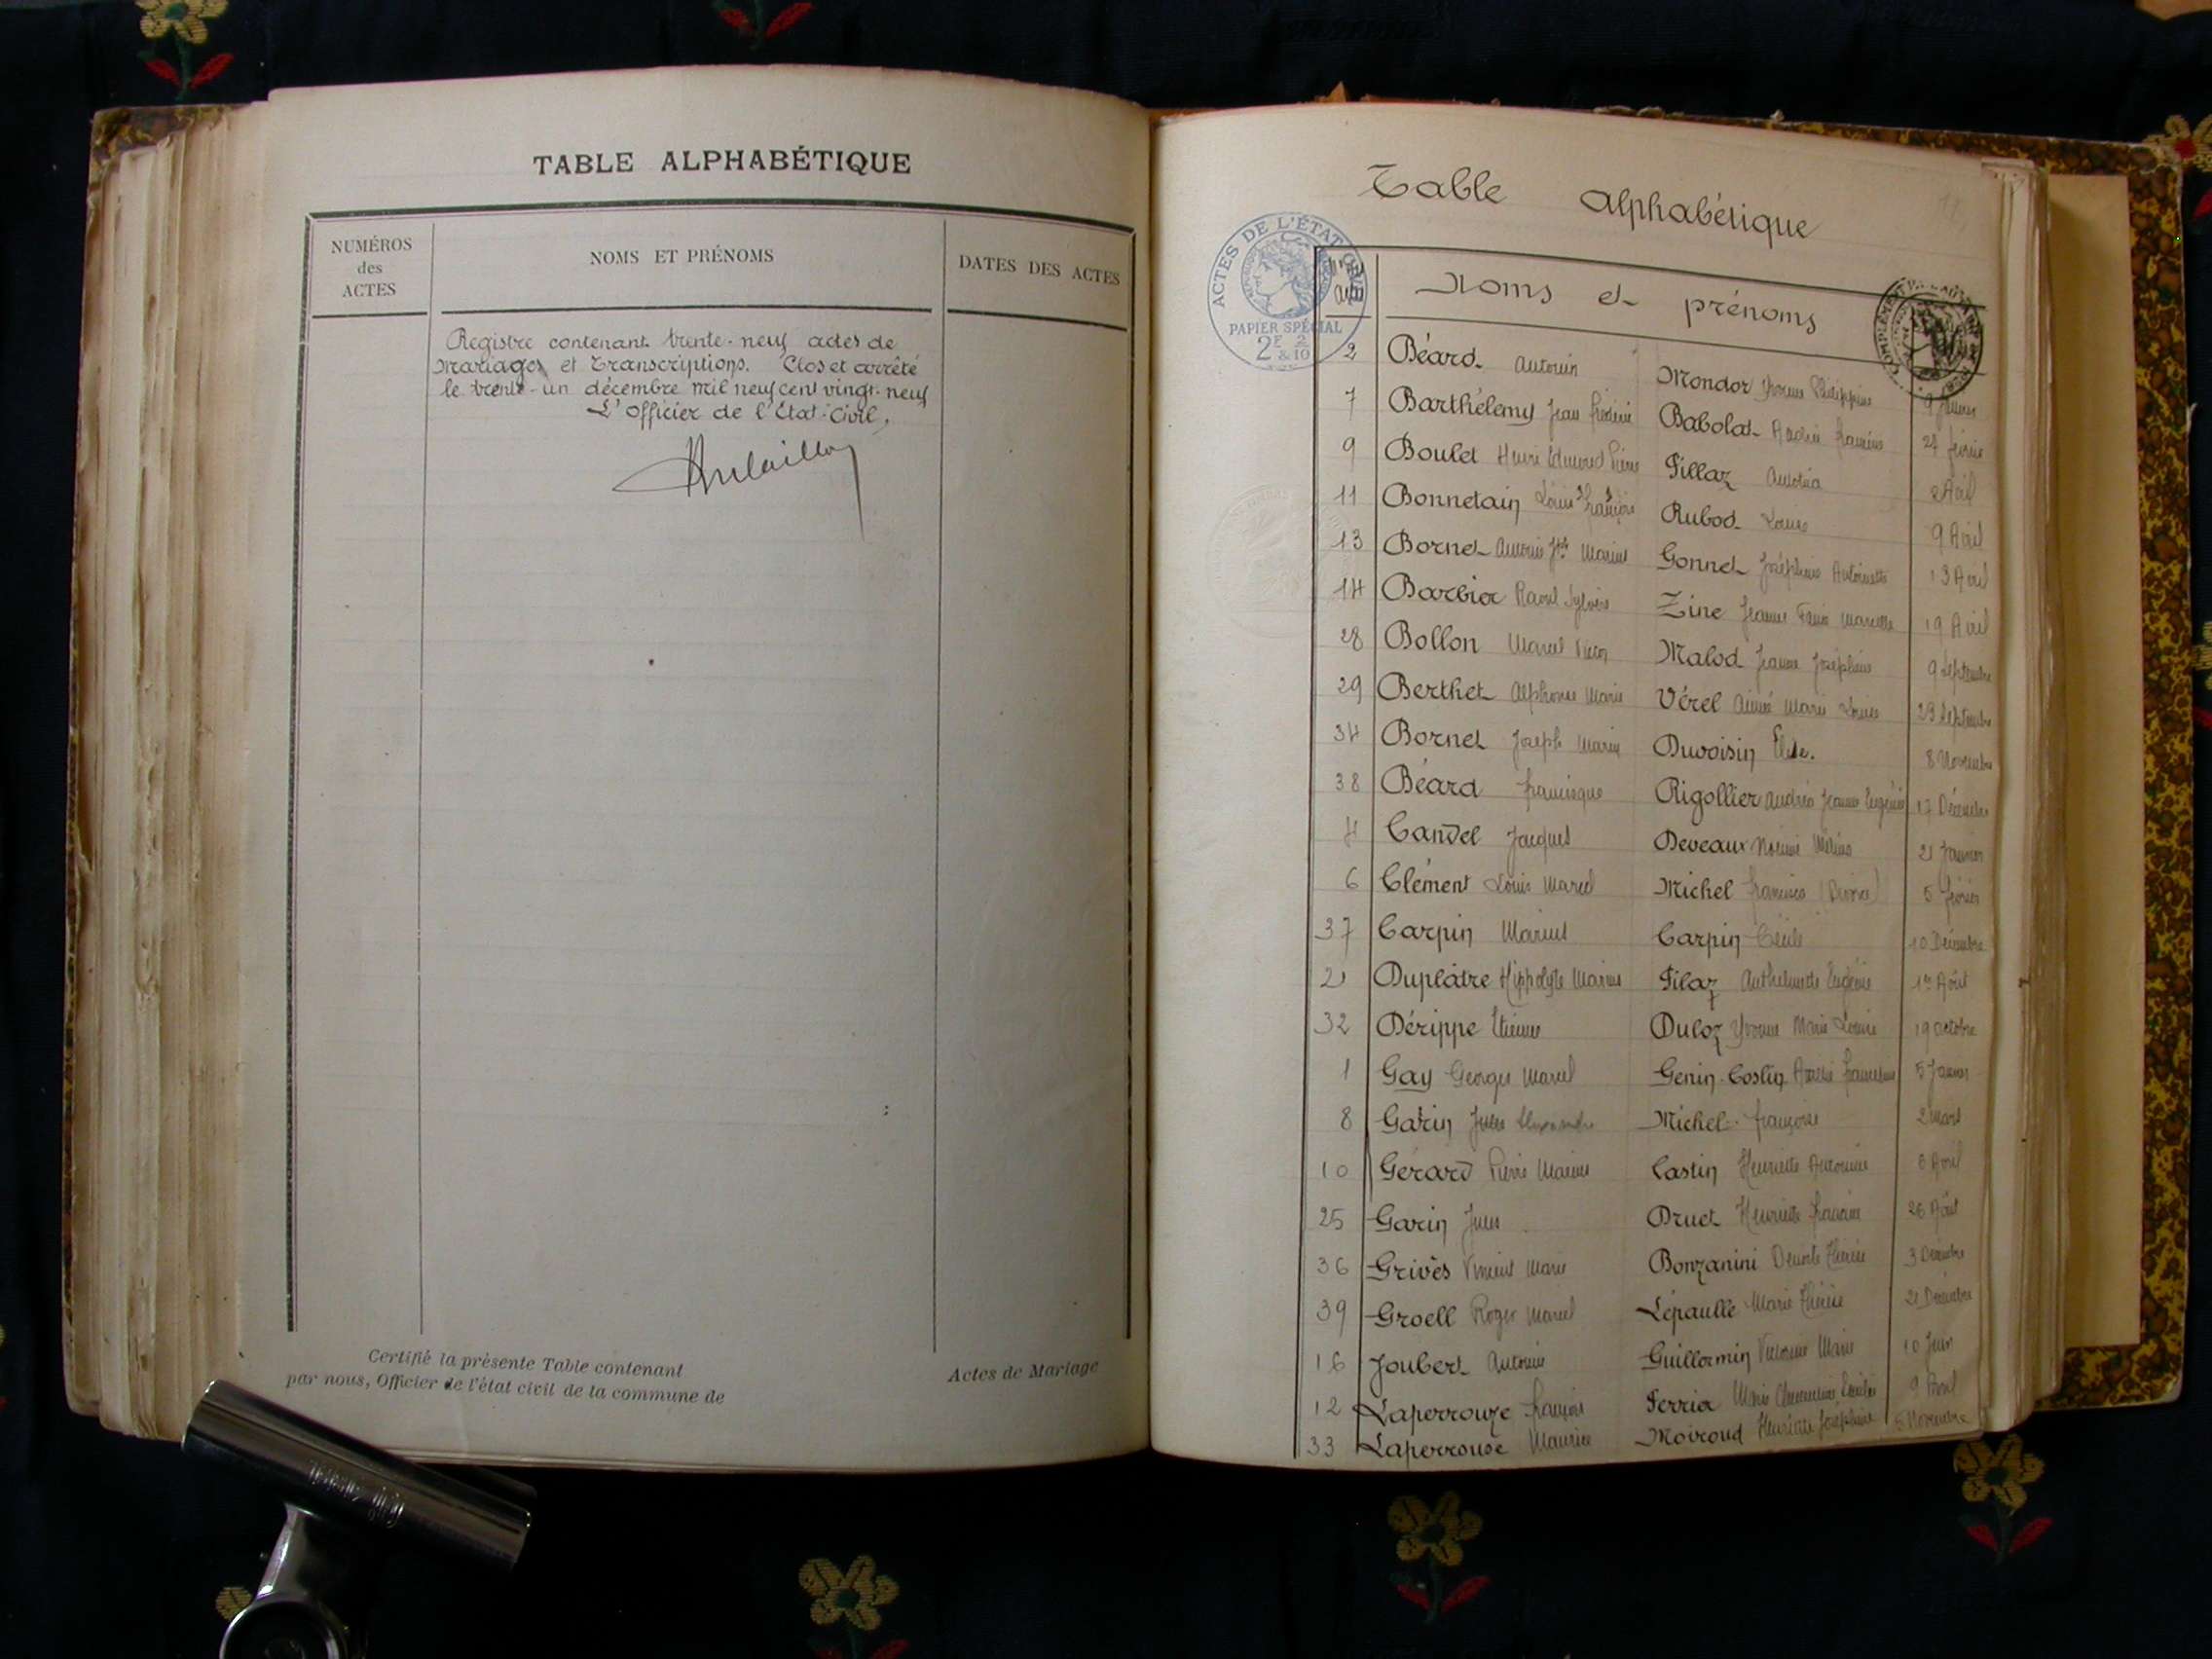 TABLE ALPHABÉTIQUE
NUMÉROS
des
ACTES
NOMS ET PRÉNOMS
DATES DES ACTES
Registre contenant trente-neuf actes de
Mariages et Transcriptions. Clos et arrêté
le trente-un décembre mil neuf cent vingt-neuf
L'Officier de l'État-Civil,
Certifié la présente Table contenant
par nous, Officier de l'état civil de la commune de
Actes de Mariage
Table Alphabétique
ACTES DE L'ÉTAT
PAPIER SPÉCIAL
2E 2
& 10
Noms et prénoms
2 Béard Antonin Mondor Yvonne Philippine 9
7 Barthélemy Jean Babolat 27 février
9 Boulet Henri Edmond Pierre Fillaz 2 Avril
11 Bonnetain Louis François Rubod Louise 9 Avril
13 Bornet Antonin Jph Marius Gonnet Joséphine Antoinette 13 Avril
14 Barbier Raoul Sylvain Zine Jeanne Marcelle 19 Avril
28 Bollon Marcel Malod Jeanne Joséphine 9 Septembre
29 Berthet Alphonse Marie Vérel Aimée Marie Louise 23 Septembre
34 Bornet Joseph Marius Duvoisin Élise. 8 Novembre
38 Béard Francisque Rigollier Andréa Jeanne Eugénie 17 Décembre
4 Candel Jacques Deveaux 21 Janvier
6 Clément Louis Marcel Michel (Divorce) 5 février
37 Carpin Marius Carpin Cécile 10 Décembre
21 Duplâtre Hippolyte Marius Pilaz Anthelmette Eugénie 1er Août
32 Dérippe Étienne Duloz Yvonne Marie Louise 19 Octobre
1 Gay Georges Marcel Genin-Coslin 5 Janvier
8 Garin Jules Alexandre Michel françoise 2 Mars
10 Gérard Pierre Marius Castin Henriette Antonine 6 Avril
25 Garin Jules Druet Henriette 26 Août
36 Grivès Vincent Marie Bonzanini Thérèse 3 Décembre
39 Groëll Roger Marcel Lépaulle Marie Thérèse 21 Décembre
16 Joubert Antoine Guillermin Victorine Marie 10 Juin
12 Laperrouze françois Perrier Marie 9 Avril
33 Laperrouse Maurice Moiroud Henriette Joséphine 5 Novembre